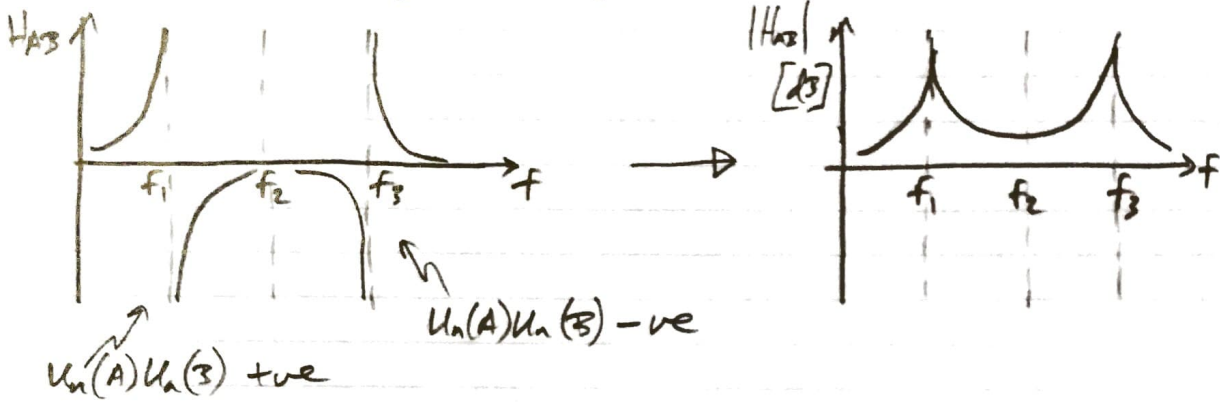 H_AB
f₁ f₂ f₃ f
u_n(A)u_n(B) -ve
u_n(A)u_n(B) +ve
|H_AB|
[dB]
f₁ f₂ f₃ f